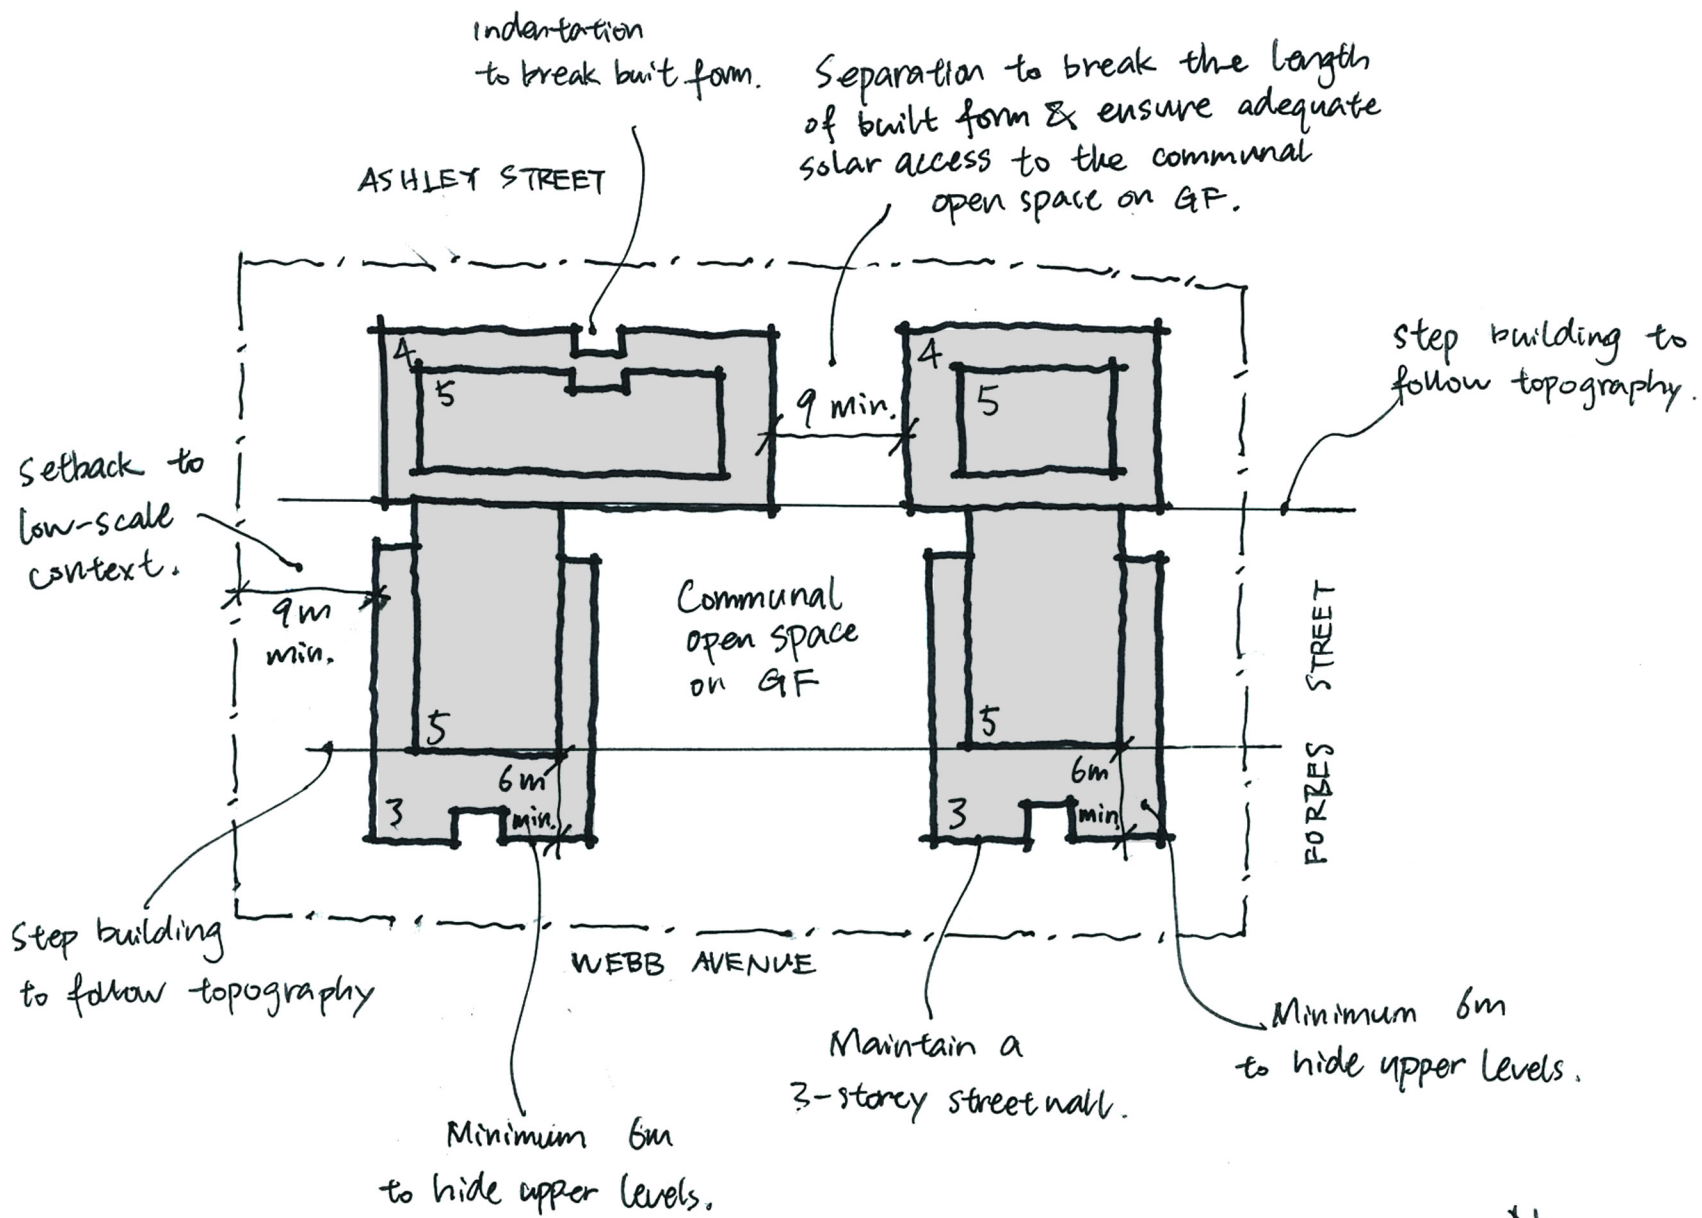 Indentation
to break buit form.
Separation to break the length
of built form & ensure adequate
solar access to the communal
open space on GF.
ASHLEY STREET
step building to
follow topography.
4
5
9 min.
4
5
Setback to
low-scale
context.
9m
min.
Communal
open space
on GF
5
6m
min.
3
5
6m
min
3
FORBES STREET
Step building
to follow topography
WEBB AVENUE
Maintain a
3-storey street wall.
Minimum 6m
to hide upper levels.
Minimum 6m
to hide upper levels.